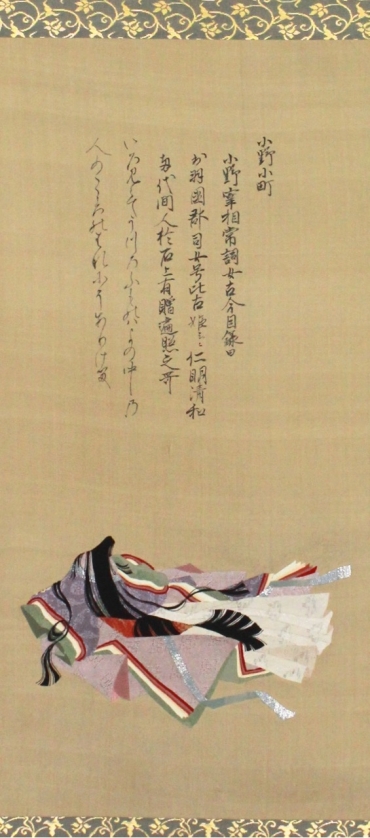 小野小町
小野宰相常調女古今目録曰
出羽国郡司女号比古姫云々仁明清和
両代間人於石上有贈遍照之哥
いろ見えてうつろふものはよの中の
人のこゝろのはなにそありける